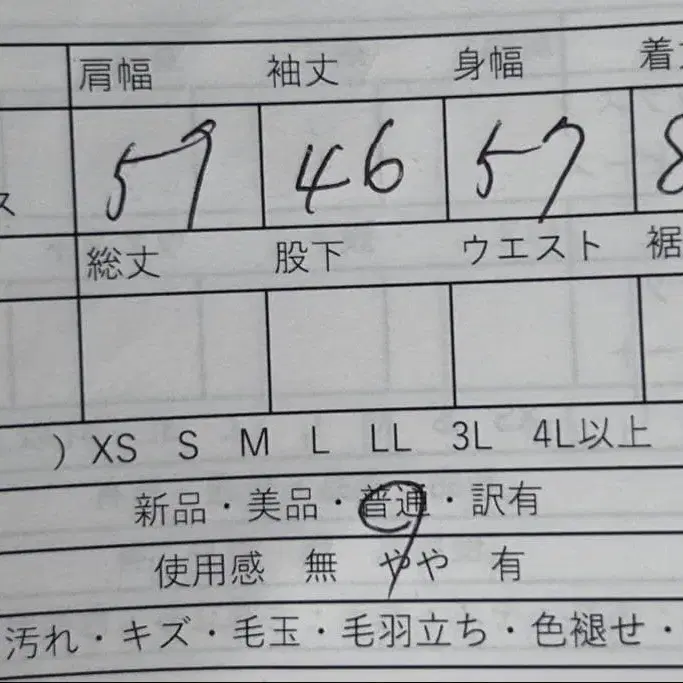 肩幅 袖丈 身幅 着
ス 57 46 57 8
総丈 股下 ウエスト 裾
) XS S M L LL 3L 4L以上
新品・美品・普通・訳有
使用感 無 やや 有
汚れ・キズ・毛玉・毛羽立ち・色褪せ・